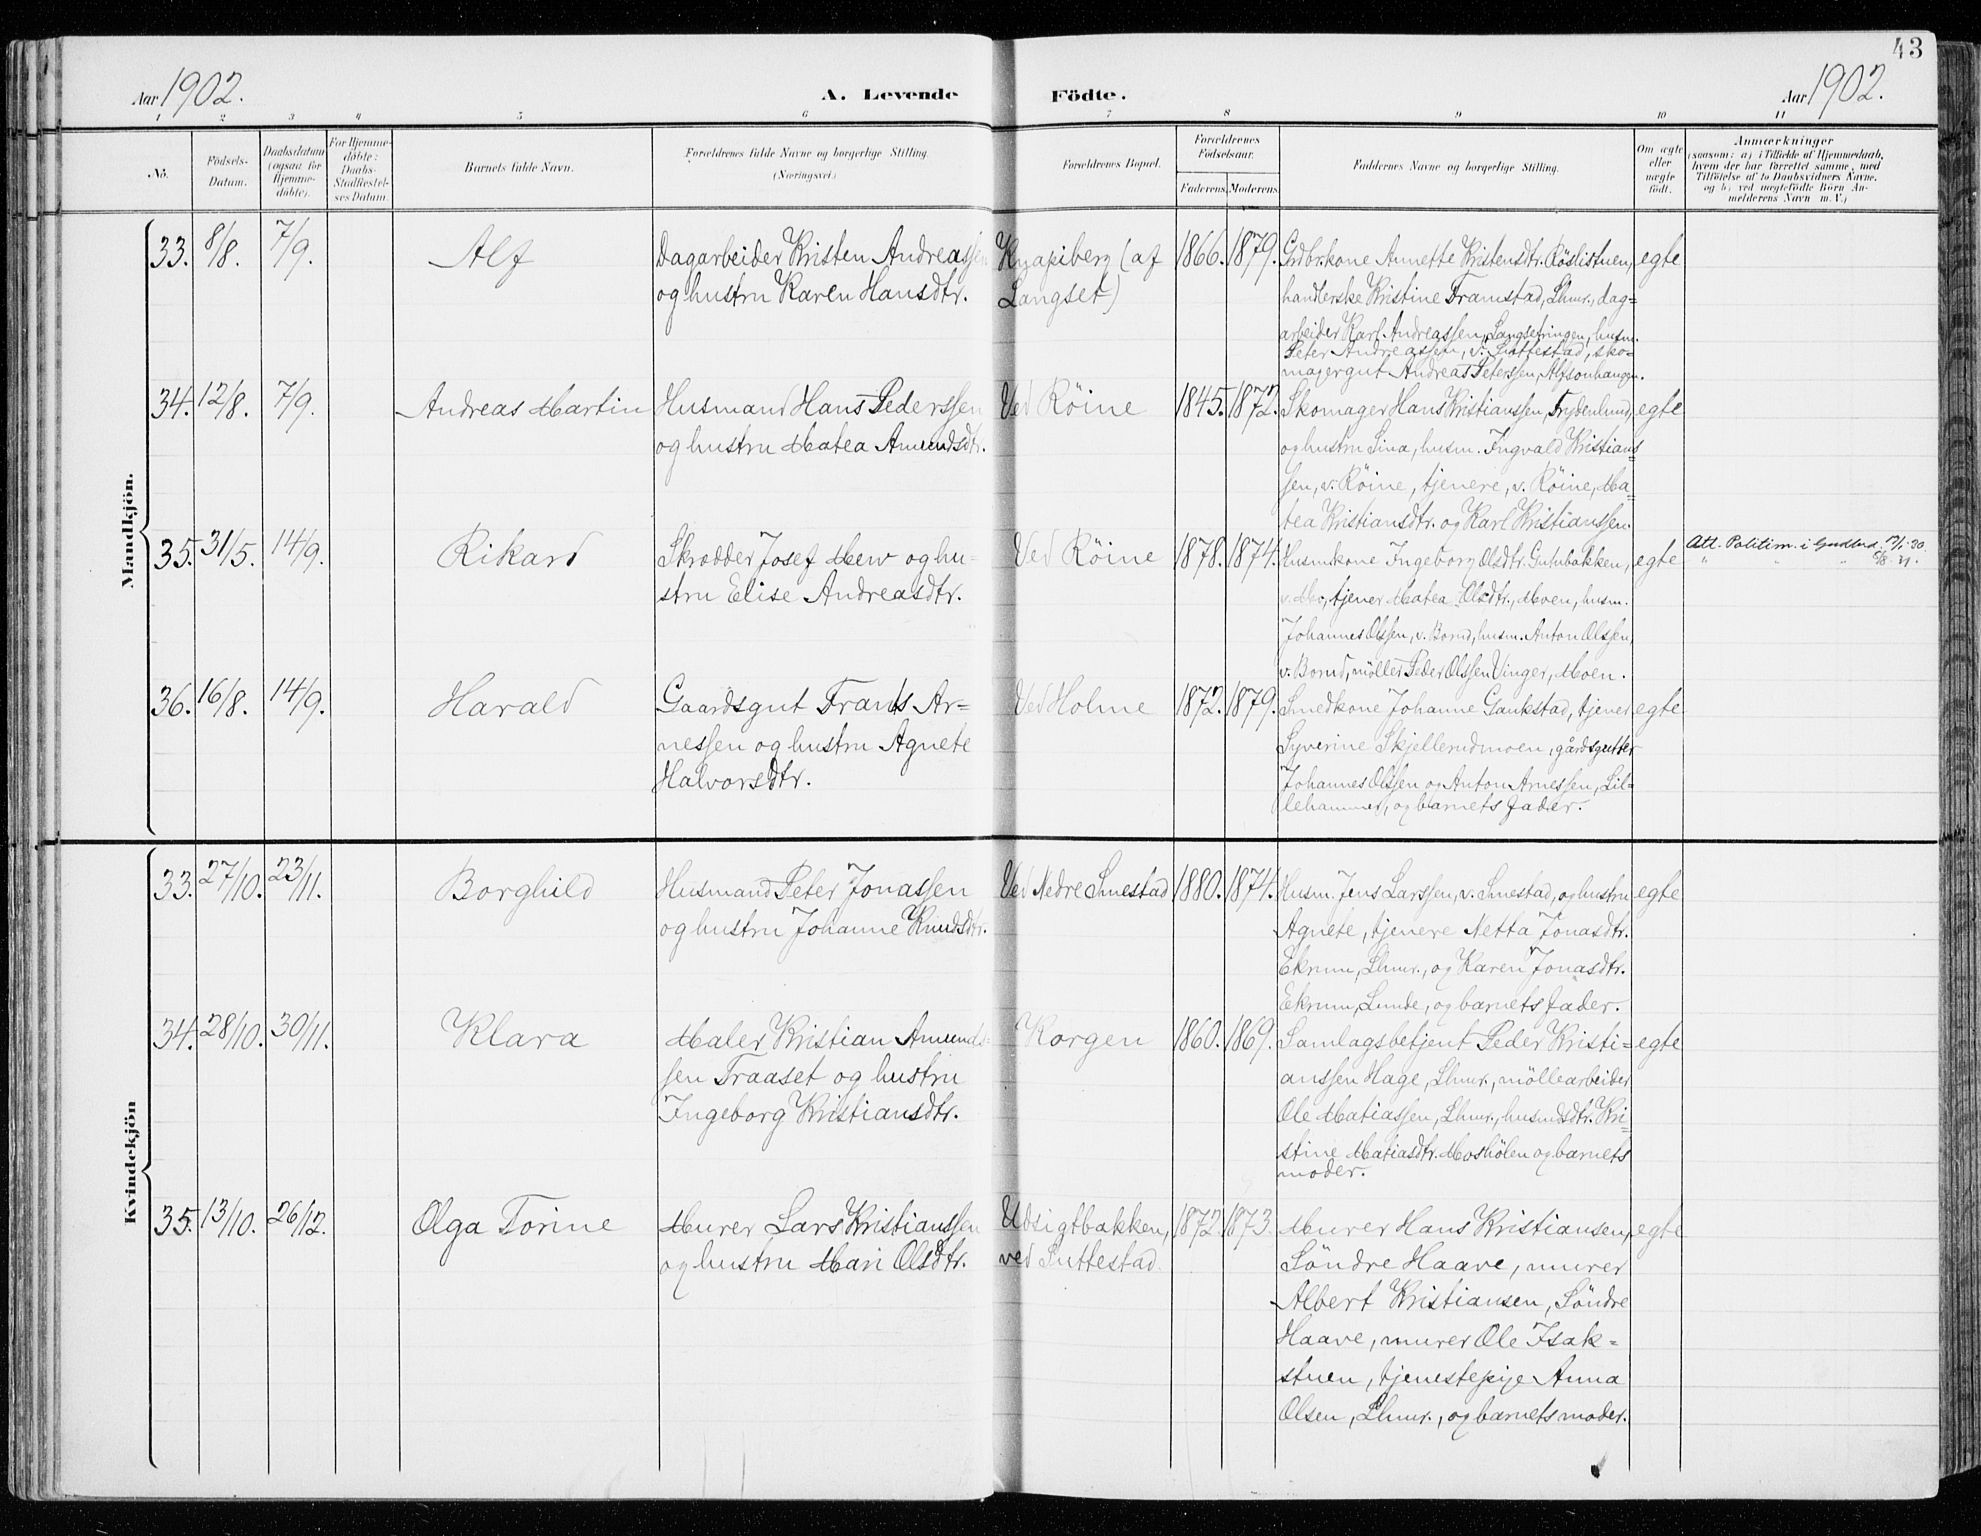 43
Aar 1902.
A. Levende Födte.
Aar 1902.
1 2 3 4 5 6 7 8 9 10 11
No.
Födsels-
Datum.
Daabsdatum
(ogsaa for
Hjemme-
döbte).
For Hjemme-
döbte:
Daabs-
Stadfæstel-
ses Datum.
Barnets fulde Navn.
Forældrenes fulde Navne og borgerlige Stilling.
(Næringsvei.)
Forældrenes Bopæl.
Forældrenes
Födselsaar.
Faderens. Moderens.
Faddernes Navne og borgerlige Stilling.
Om ægte
eller
uægte
født.
Anmærkninger
(saasom: a) i Tilfælde af Hjemmedaab,
hvem der har forrettet samme, med
Tilföielse af to Daabsvidners Navne.
og b) ved uægtefödte Börn An-
melderens Navn m. V.)
Mandkjön.
33. 8/8. 7/9. Alf
Dagarbeider Kristen Andreassen
og hustru Karen Hansdtr.
Knapiberg (af
Langset)
1866. 1879.
Grdbr.kone Annette Kristensdtr. Röslistuen,
handlerske Kristine Framstad, Lhmr., dag=
arbeider Karl Andreassen, Langsetringen, husm.
Peter Andreassen, v. Suttestad, sko=
magergut Andreas Peterssen, Alfsonhaugen.
egte
34. 12/8. 7/9. Andreas Martin
Husmand Hans Pederssen
og hustru Matea Amundsdtr.
Ved Röine
1845. 1872.
Skomager Hans Kristianssen, Frydenlund,
og hustru Lina, husm. Ingvald Kristians=
sen, v. Röine, tjenere, v. Röine, Ma=
tea Kristiansdtr. og Karl Kristianssen.
egte
35. 31/5. 14/9. Rikard
Skrædder Josef Mew og hu=
stru Elise Andreasdtr.
Ved Röine
1878. 1874.
Husm.kone Ingeborg Olsdtr. Gutubakken,
v. Mo, tjener Matea Olsdtr., Moen, husm.
Johannes Olssen, v. Borud, husm. Anton Olssen,
v. Borud, möller Peder Olssen Vinger, Moen.
egte
Att. Politim. i Gudbrd.
36. 16/8. 14/9. Harald
Gaardsgut Frants Ar=
nessen og hustru Agnete
Halvorsdtr.
Ved Holme
1872. 1879.
Smedkone Johanne Gaukstad, tjener
Syverine Skjellerudmoen, gårdsgutter
Johannes Olssen og Anton Arnessen, Lil=
lehammer, og barnets fader.
egte
Kvindekjön
33. 27/10. 23/11. Borghild
Husmand Peter Jonassen
og hustru Johanne Knudsdtr.
Ved Nedre Smestad
1880. 1874.
Husm. Jens Larssen, v. Smestad, og hustru
Agnete, tjenere Netta Jonasdtr.
Ekrum, Lhmr., og Karen Jonasdtr.
Ekrum, Lunde, og barnets fader.
egte
34. 28/10. 30/11. Klara
Maler Kristian Amunds=
sen Traaset og hustru
Ingeborg Kristiansdtr.
Korgen
1860. 1869.
Samlagsbetjent Peder Kristi=
anssen Hage, Lhmr., möllearbeider
Ole Matiassen, Lhmr., husmdsdtr. Kri=
stine Matiasdtr. Moshölen og barnets
moder.
egte
35. 13/10. 26/12. Olga Torine
Murer Lars Kristianssen
og hustru Mari Olsdtr.
Udsigtbakken,
ved Suttestad.
1872. 1873.
Murer Hans Kristiansen,
Söndre Haave, murer
Albert Kristiansen, Söndre
Haave, murer Ole Isak=
stuen, tjenestepige Anna
Olsen, Lhmr., og barnets moder.
egte